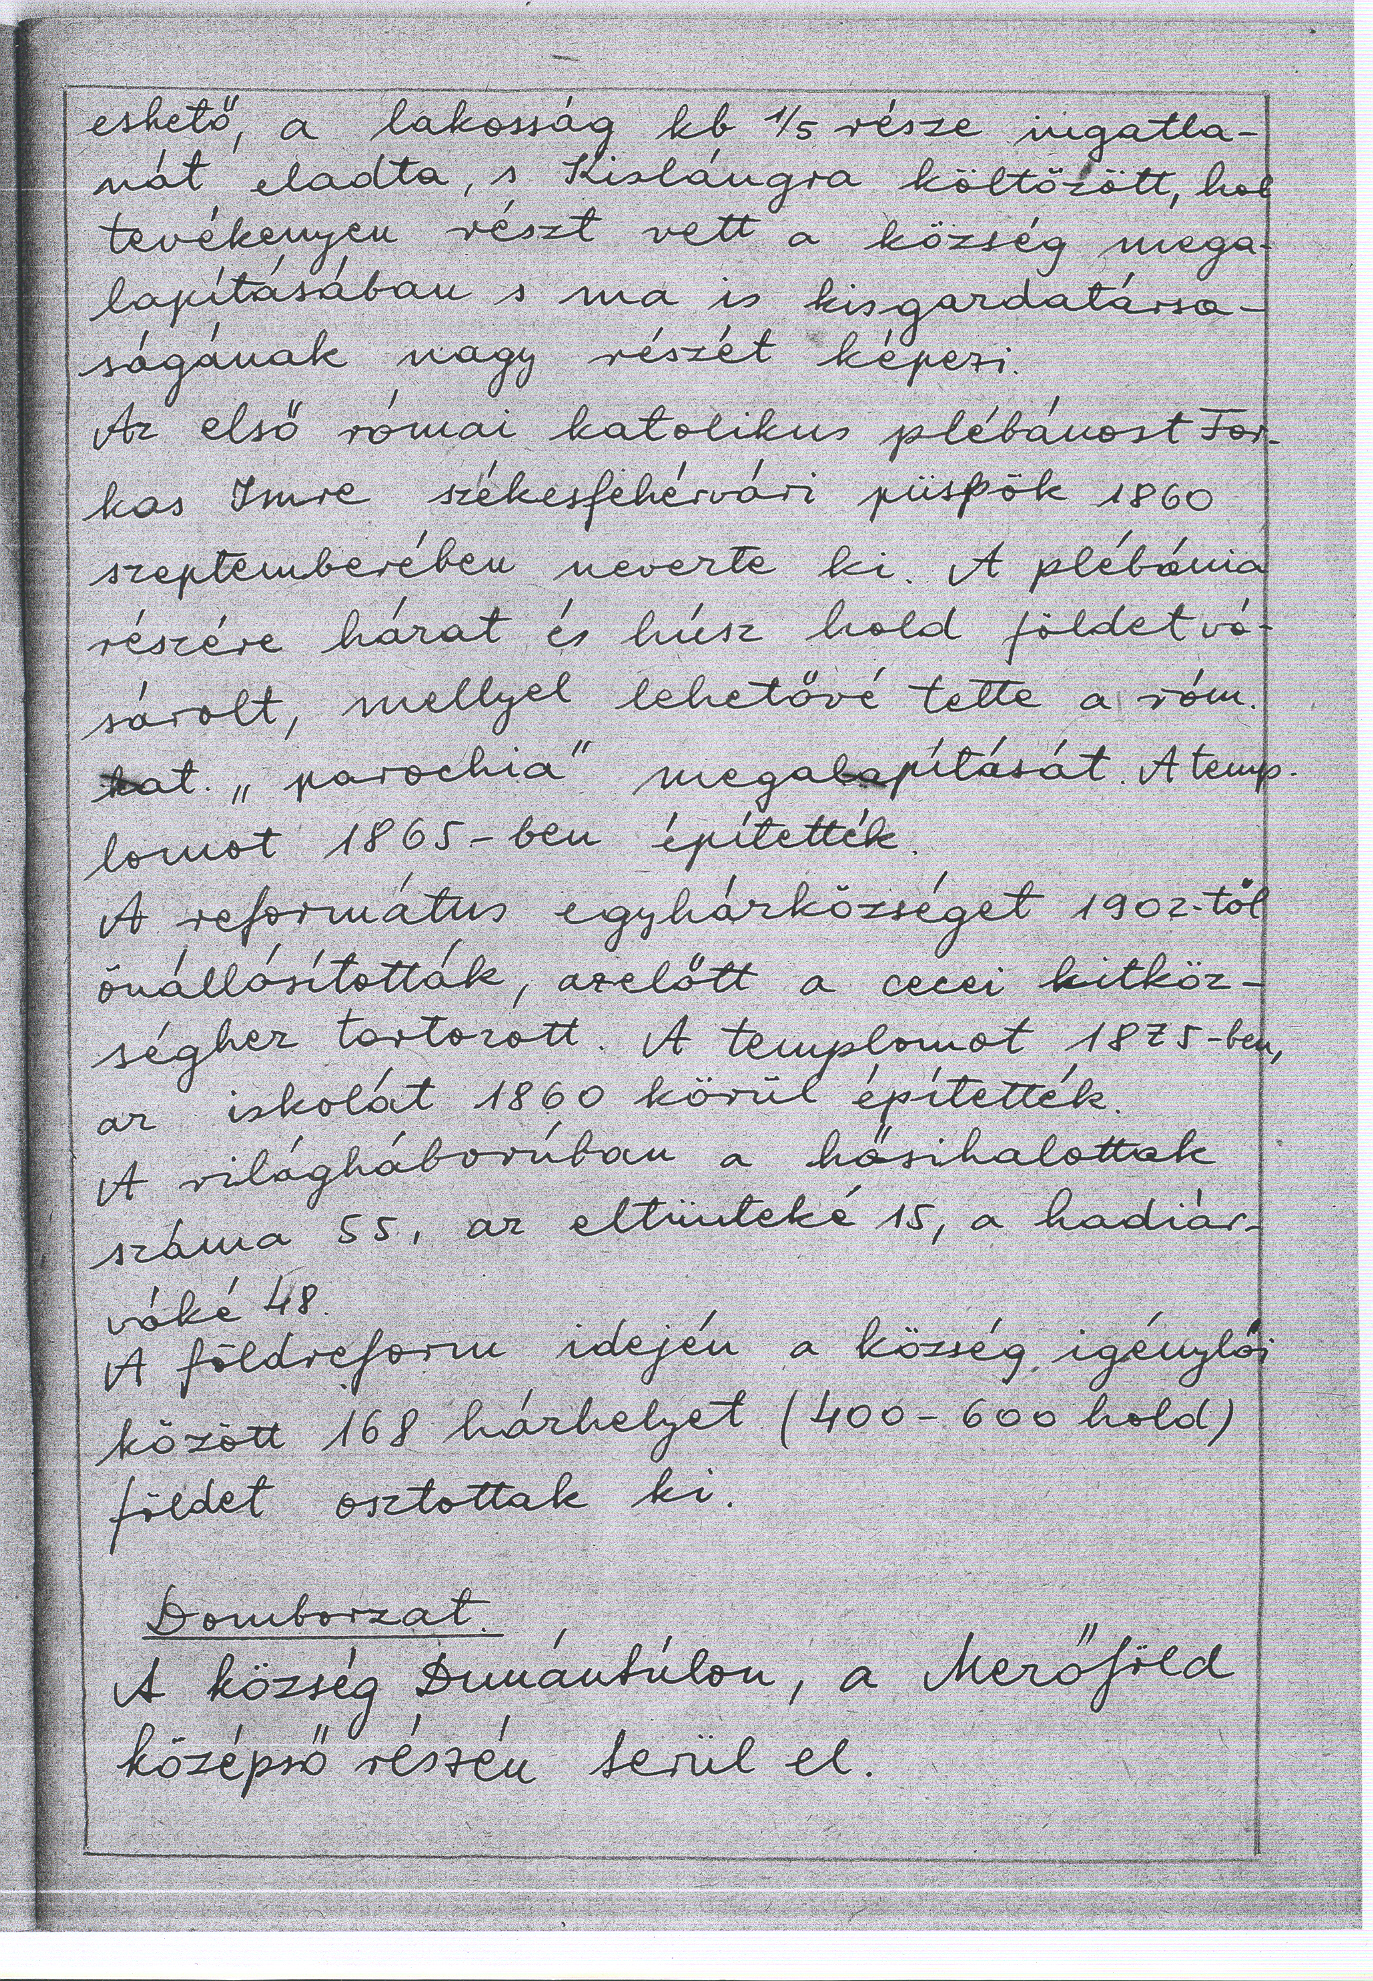 eshető, a lakosság kb 1/5 része ingatla-
nát eladta, s Kislángra költözött, hol
tevékenyen részt vett a község mega-
lapításában s ma is kisgazdatársa-
ságának nagy részét képezi.
Az első római katolikus plébánost Far-
kas Imre székesfehérvári püspök 1860
szeptemberében nevezte ki. A plébánia
részére házat és húsz hold földet vá-
sárolt, mellyel lehetővé tette a róm.
kat. „parochia" megalapítását. A temp-
lomot 1865-ben építették.
A református egyházközséget 1902-től
önállósították, azelőtt a cecei hitköz-
séghez tartozott. A templomot 1875-ben,
az iskolát 1860 körül építették.
A világháborúban a hősihalottak
száma 55, az eltünteké 15, a hadiár-
váké 48.
A földreform idején a község igénylői
között 168 házhelyet (400-600 hold)
földet osztottak ki.
Domborzat.
A község Dunántúlon, a Mezőföld
középső részén terül el.